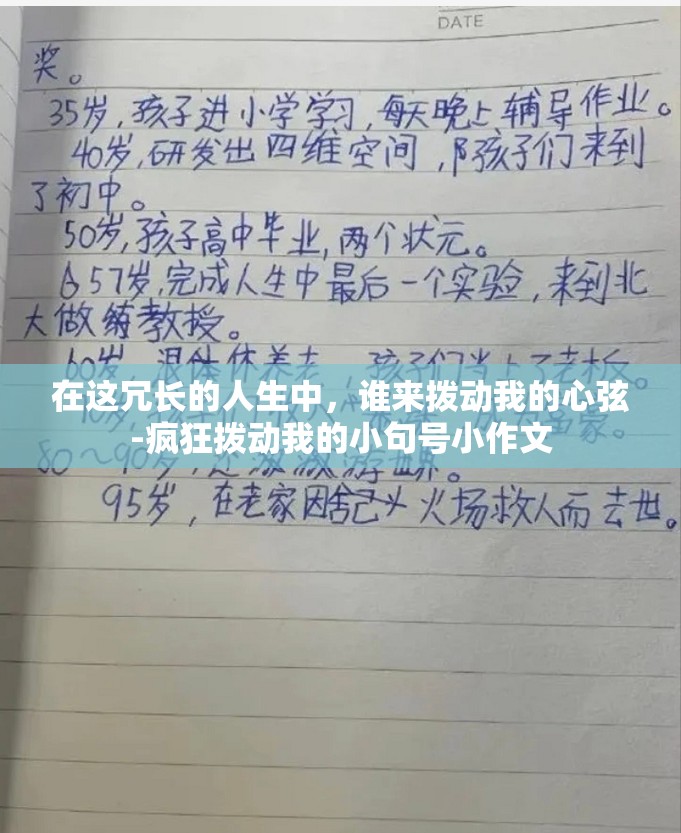 DATE
奖。
35岁,孩子进小学学习,每天晚上辅导作业。
40岁,研发出四维空间,陪孩子们来到
了初中。
50岁,孩子高中毕业,两个状元。
57岁,完成人生中最后一个实验,来到北
大做教授。
60岁,退休休养老,孩子们当上了老板。
在这冗长的人生中，谁来拨动我的心弦
-疯狂拨动我的小句号小作文
80~90岁,游世界。
95岁,在老家因舍己火场救人而去世。